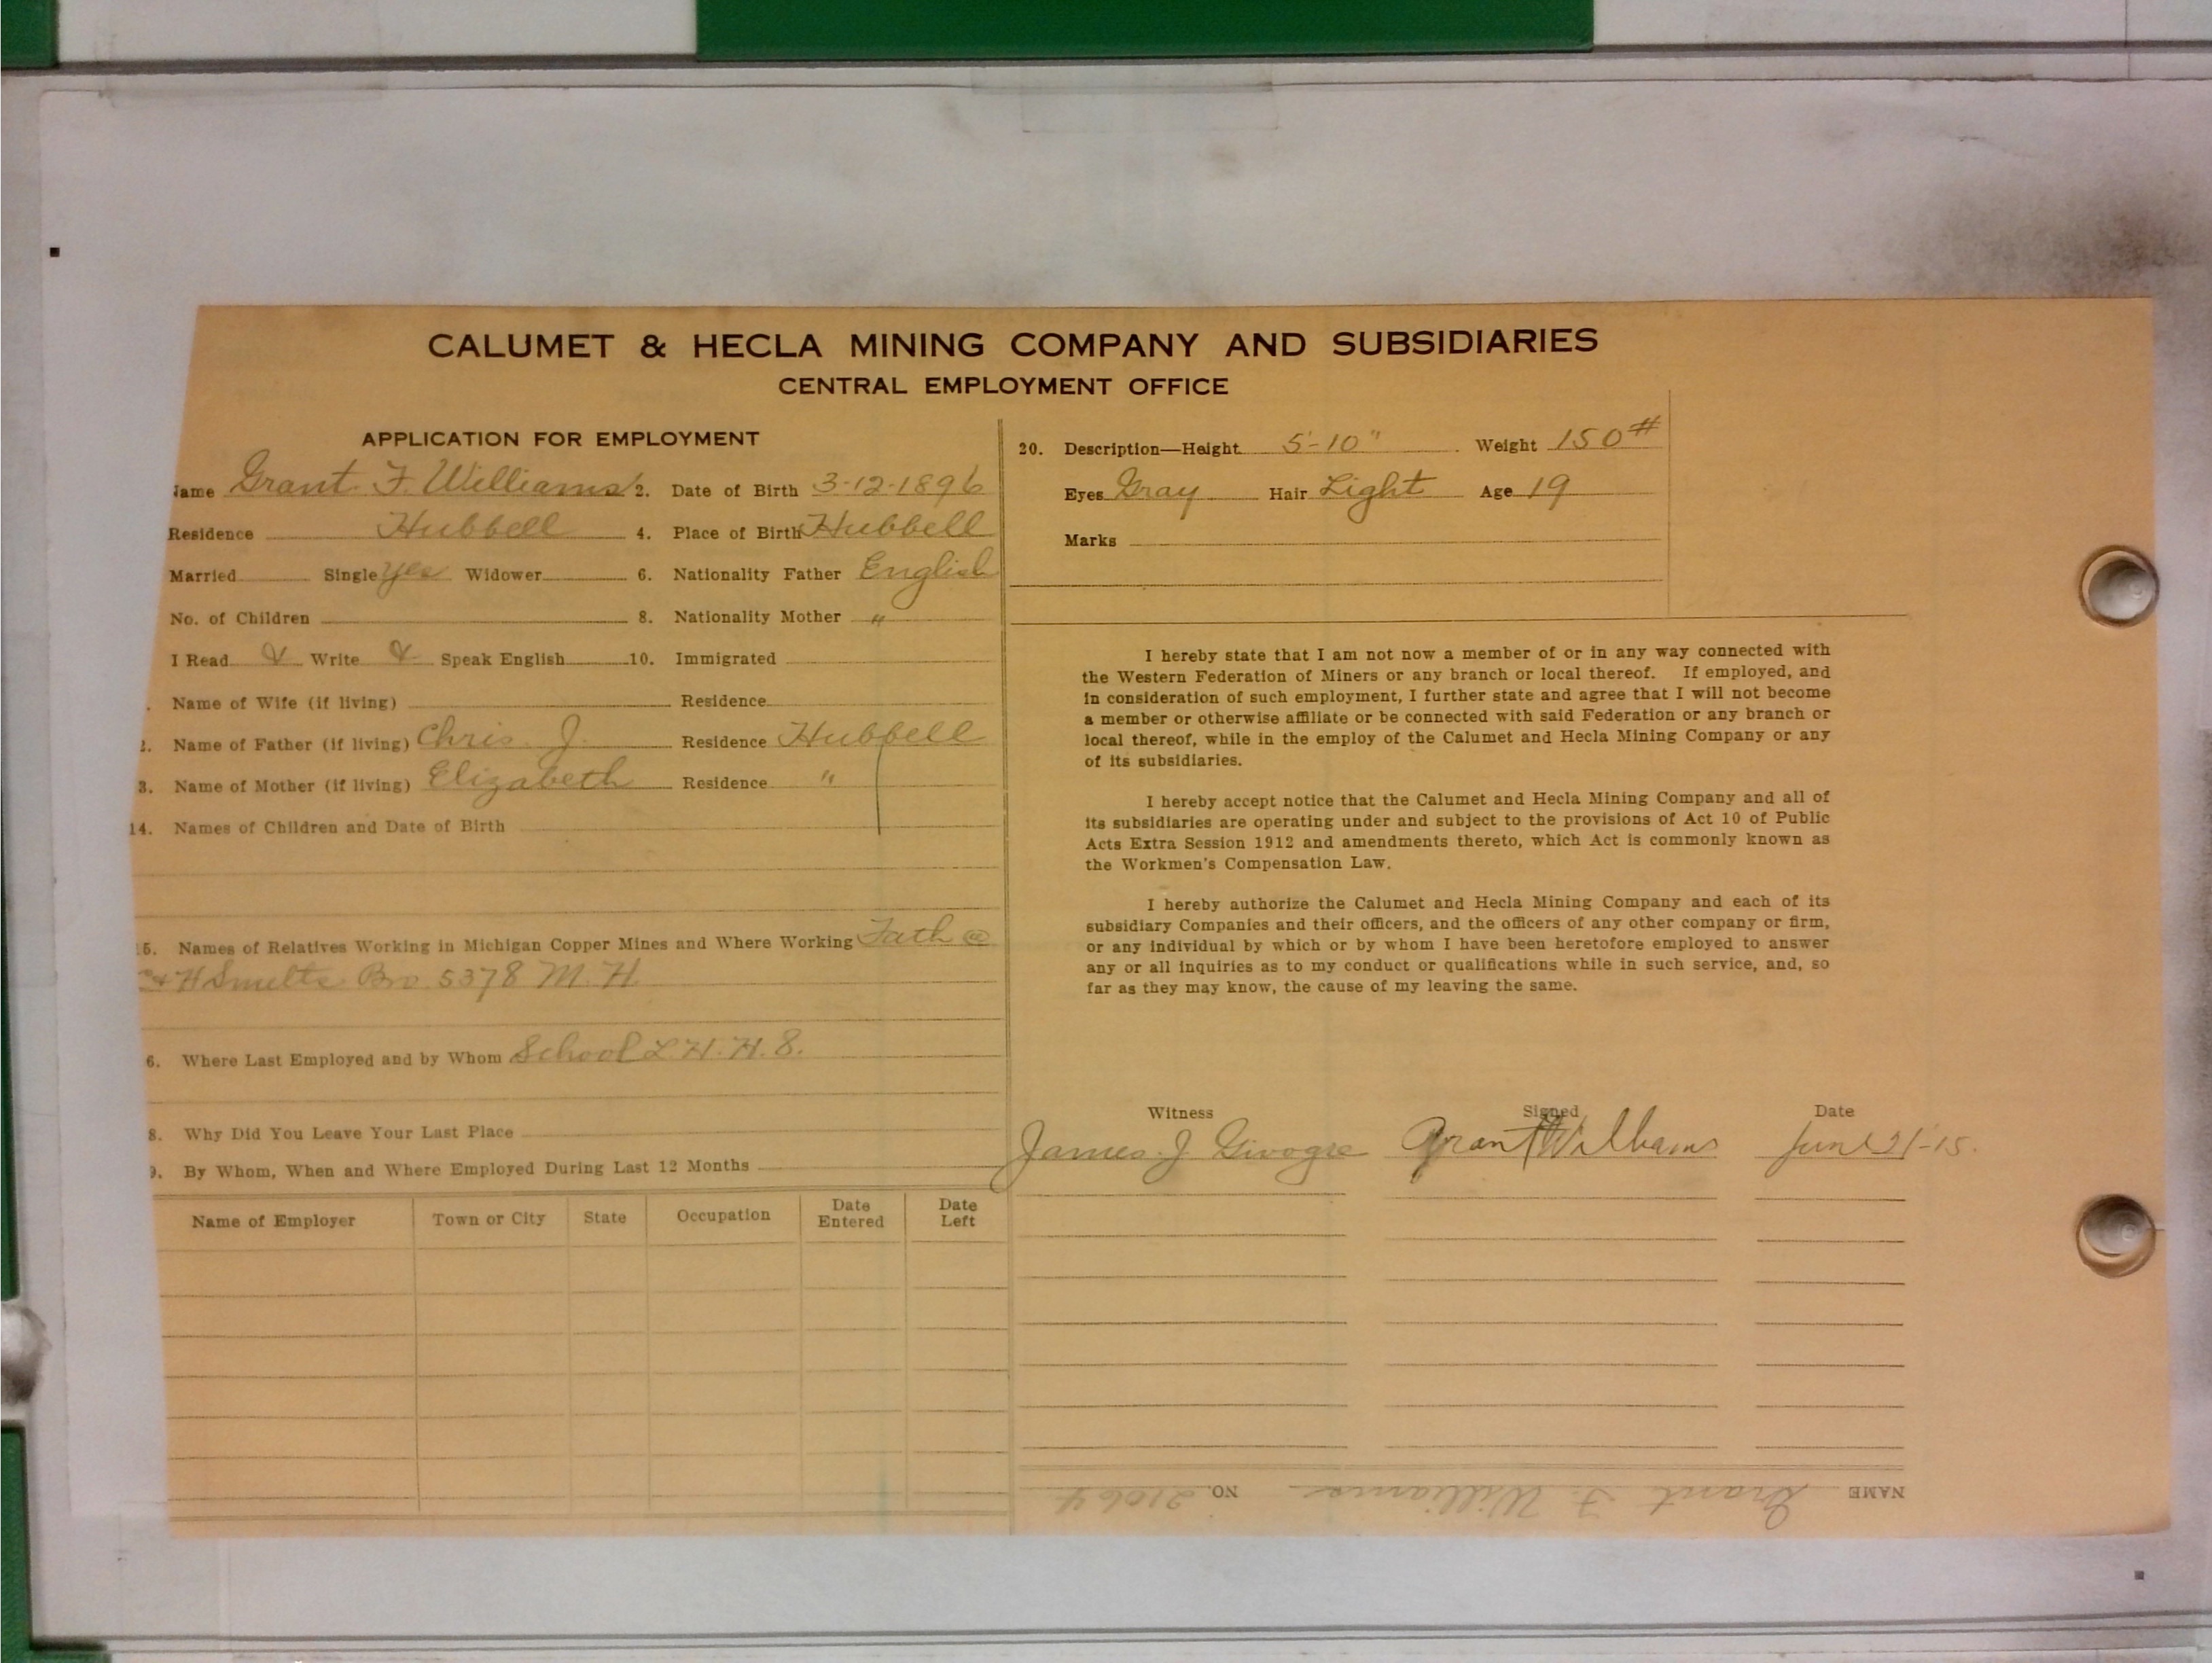 CALUMET & HECLA MINING COMPANY AND SUBSIDIARIES
CENTRAL EMPLOYMENT OFFICE
APPLICATION FOR EMPLOYMENT
Name Grant F. Williams 2. Date of Birth 3-12-1896
Residence Hubbell 4. Place of Birth Hubbell
Married Single yes Widower 6. Nationality Father English
No. of Children 8. Nationality Mother "
I Read & Write & Speak English 10. Immigrated
Name of Wife (if living) Residence
2. Name of Father (if living) Chris J. Residence Hubbell
3. Name of Mother (if living) Elizabeth Residence "
14. Names of Children and Date of Birth
15. Names of Relatives Working in Michigan Copper Mines and Where Working Fath @
C & H Smelts Bro 5378 M. H.
6. Where Last Employed and by Whom School L. H. H. S.
8. Why Did You Leave Your Last Place
9. By Whom, When and Where Employed During Last 12 Months
Name of Employer Town or City State Occupation Date Entered Date Left
20. Description—Height 5'-10" Weight 150#
Eyes Gray Hair Light Age 19
Marks
I hereby state that I am not now a member of or in any way connected with
the Western Federation of Miners or any branch or local thereof. If employed, and
in consideration of such employment, I further state and agree that I will not become
a member or otherwise affiliate or be connected with said Federation or any branch or
local thereof, while in the employ of the Calumet and Hecla Mining Company or any
of its subsidiaries.
I hereby accept notice that the Calumet and Hecla Mining Company and all of
its subsidiaries are operating under and subject to the provisions of Act 10 of Public
Acts Extra Session 1912 and amendments thereto, which Act is commonly known as
the Workmen's Compensation Law.
I hereby authorize the Calumet and Hecla Mining Company and each of its
subsidiary Companies and their officers, and the officers of any other company or firm,
or any individual by which or by whom I have been heretofore employed to answer
any or all inquiries as to my conduct or qualifications while in such service, and, so
far as they may know, the cause of my leaving the same.
Witness Signed Date
James J Grant Williams June 21-15.
NAME Grant F. Williams NO. 21064